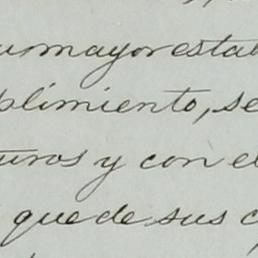 su mayor estab
plimiento, se
turos y con el
que de sus c